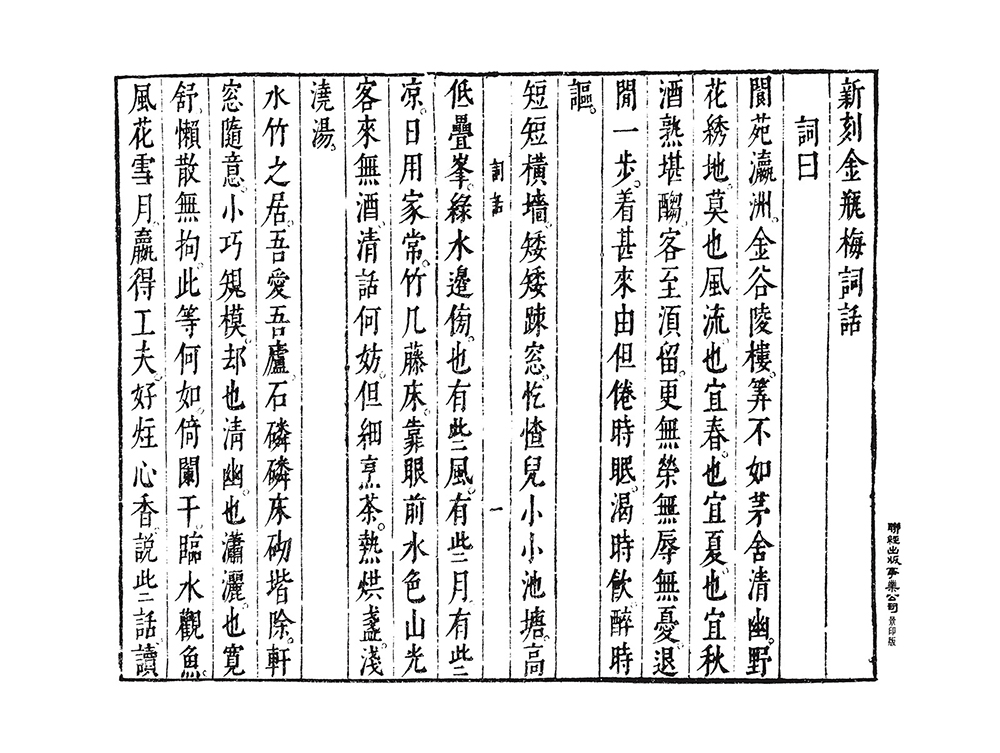 新刻金瓶梅詞話
詞曰
閬苑瀛洲。金谷陵樓。筭不如茅舍清幽。野
花綉地。莫也風流。也宜春。也宜夏。也宜秋
酒熟堪䣯。客至湏留。更無榮無辱無憂。退
閒一步。着甚來由。但倦時眠。渴時飲。醉時
謳。
短短橫墻。矮矮踈窓。忔㤞兒小小池塘。高
詞話
一
低疊峯。綠水邉傍。也有些風。有些月。有些
凉。日用家常。竹几藤床。靠眼前水色山光
客來無酒。清話何妨。但細烹茶。熱烘盞。淺
澆湯。
水竹之居。吾愛吾廬。石磷磷床砌堦除。軒
窓隨意。小巧規模。却也清幽。也瀟灑。也寛
舒。懶散無拘。此等何如。倚闌干。臨水觀魚。
風花雪月。贏得工夫。好炷心香。說些話。讀
聯經出版事業公司 景印版